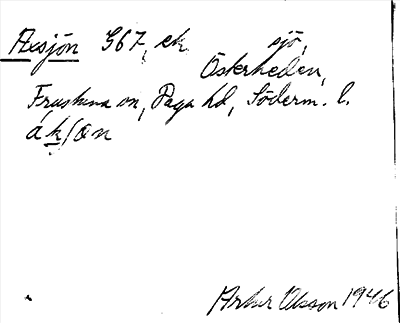 Axsjön G67, ek sjö,
Österheden,
Frustuna sn, Daga hd, Söderm. l.
áks/ön
Arthur Olsson 1946